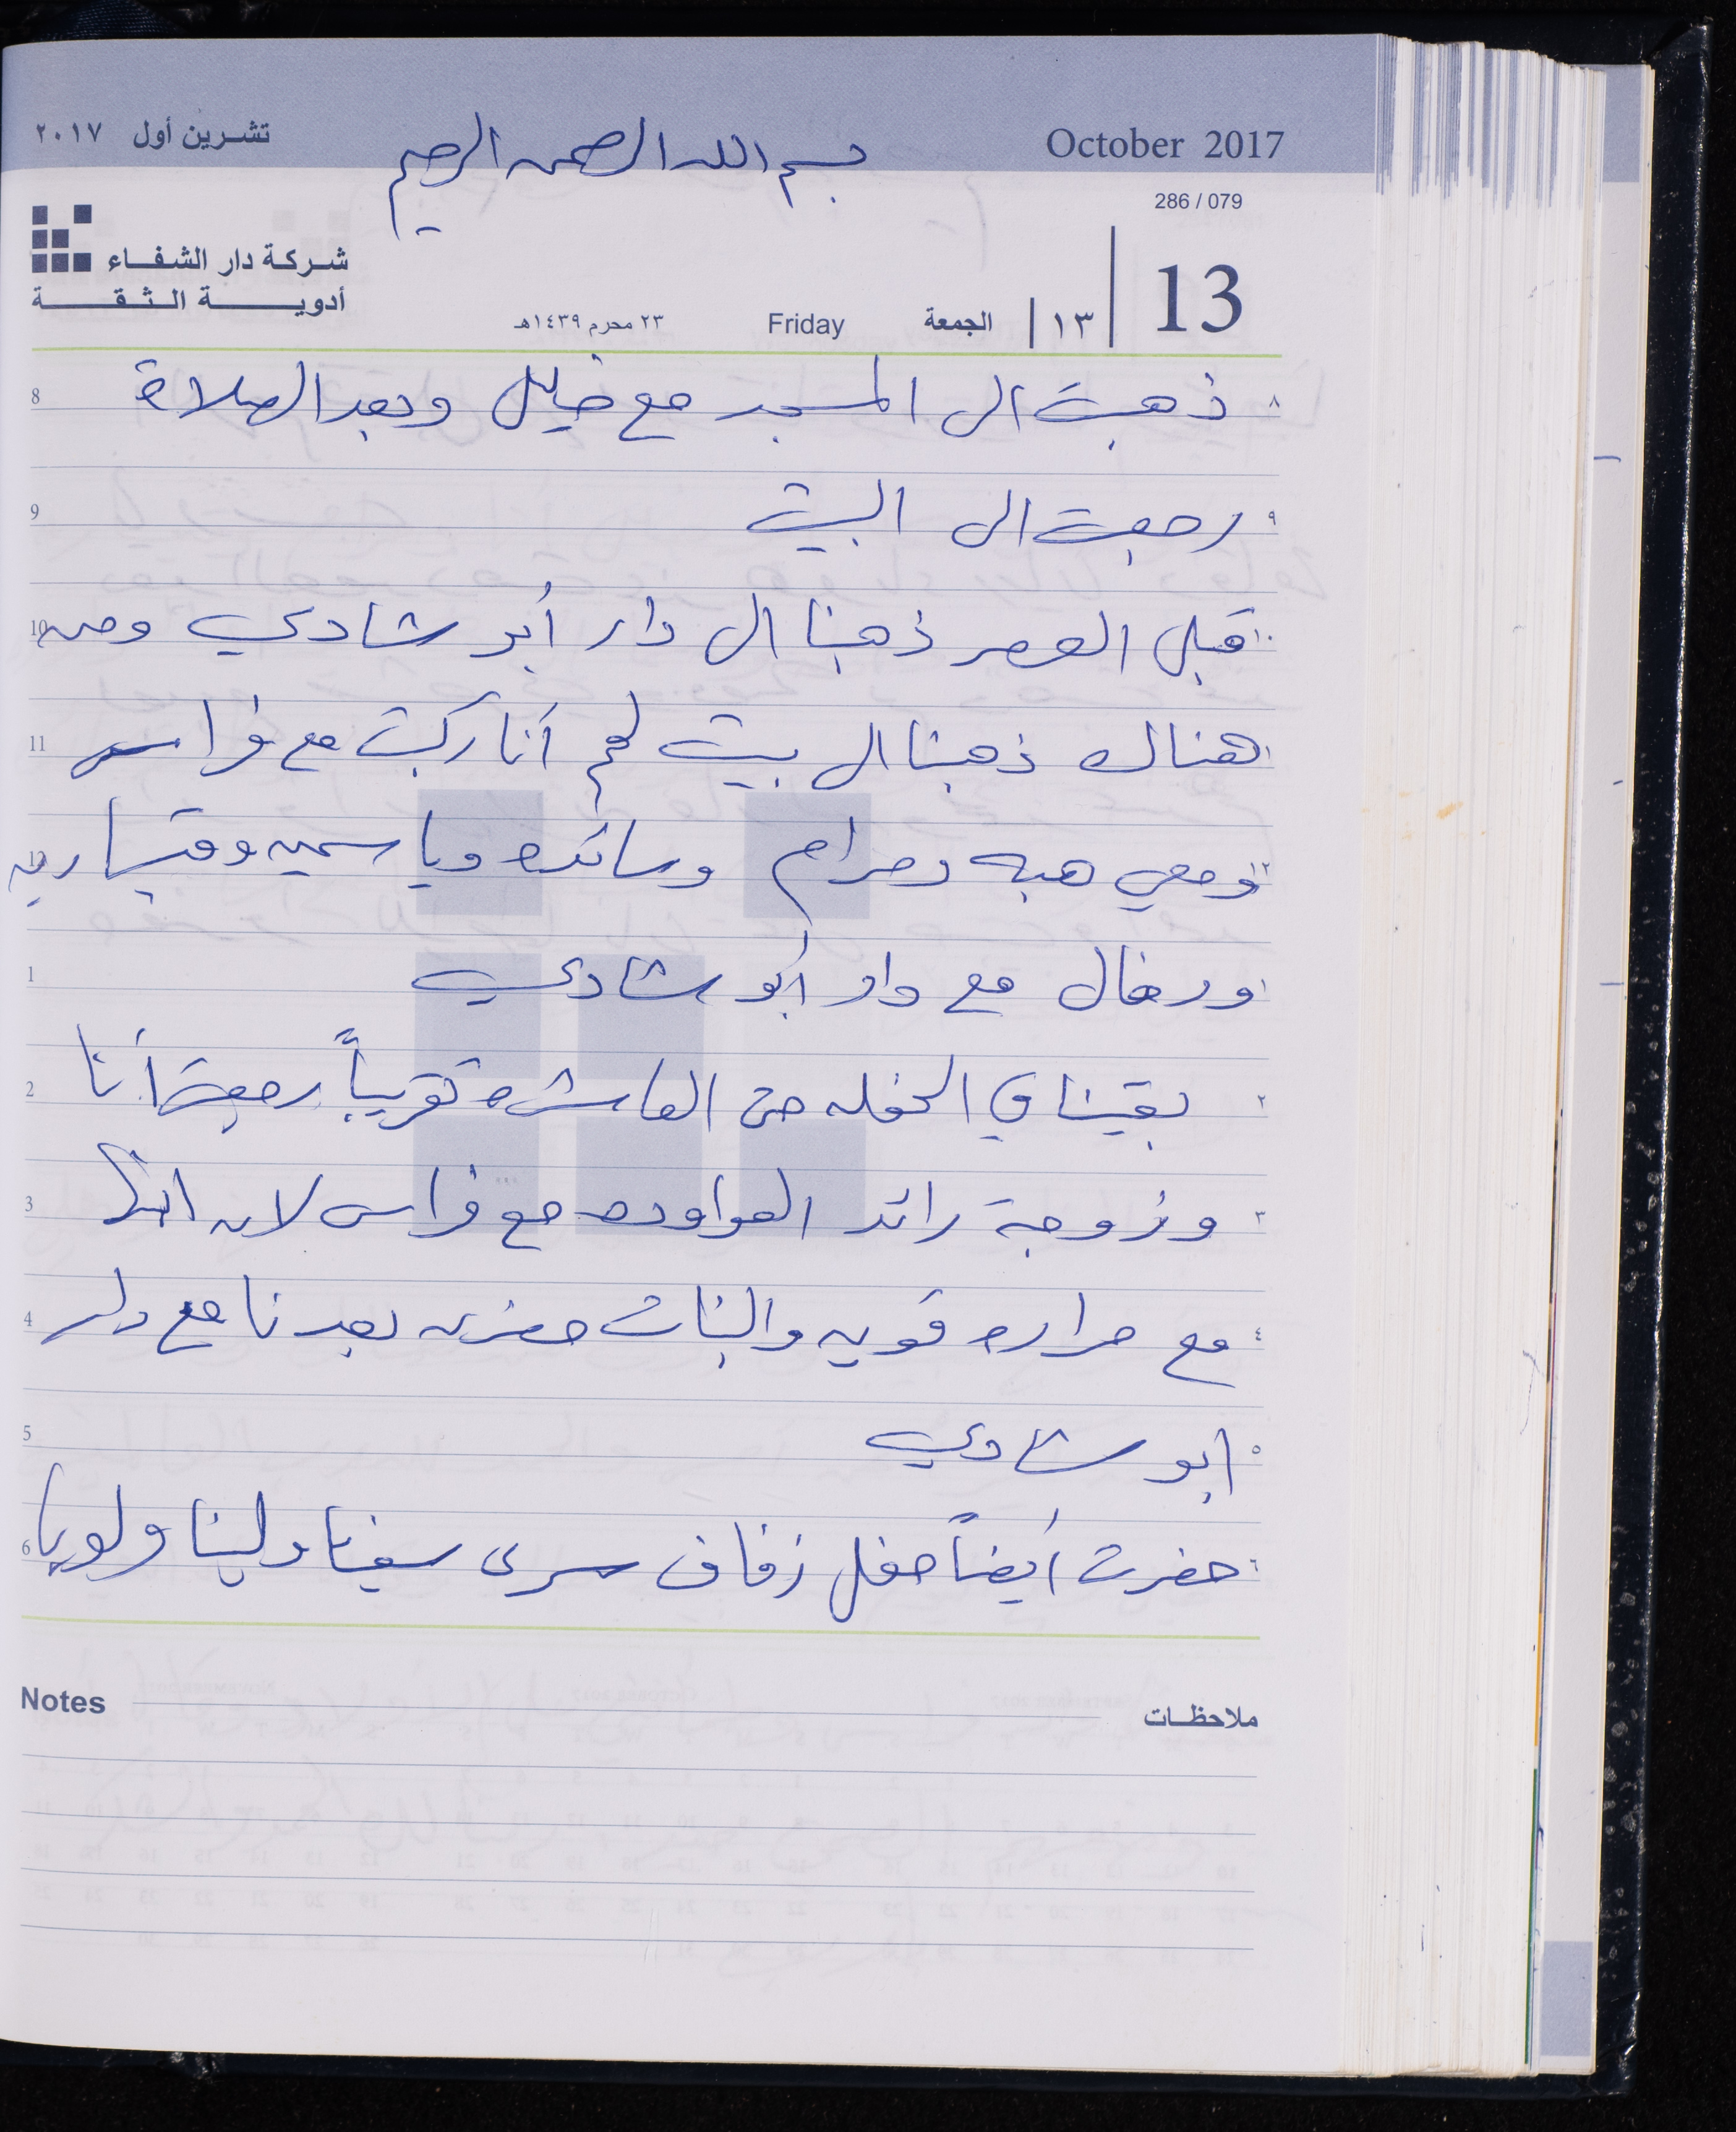 October 2017
بسم الله الرحمن الرحيم
تشرين أول ٢٠١٧
286 / 079
شركة دار الشفاء
أدوية الثقة
13
١٣
الجمعة
Friday
٢٣ محرم ١٤٣٩هـ
٨ ذهبت الى المسجد مع خليل وبعد الصلاة 8
٩ رجعت الى البيت 9
١٠ قبل العصر ذهبنا الى دار أبو شادي ومن 10
١١ هناك ذهبنا الى بيت لحم أنا ركبت مع فراس 11
١٢ ومعي هبه ومرام وسائده وياسمين وقيساريه 12
١ ونضال مع دار أبو شادي 1
٢ بقينا في الحفله حتى العاشره تقريباً رجعت أنا 2
٣ وزوجة رائد العواوده مع فراس لان 3
٤ مع حراره قويه والبنات حضرن بعدنا مع دار 4
٥ ابو شادي 5
٦ حضرت أيضاً حفل زفاف يسرى سيفنا ولينا 6
Notes
ملاحظات